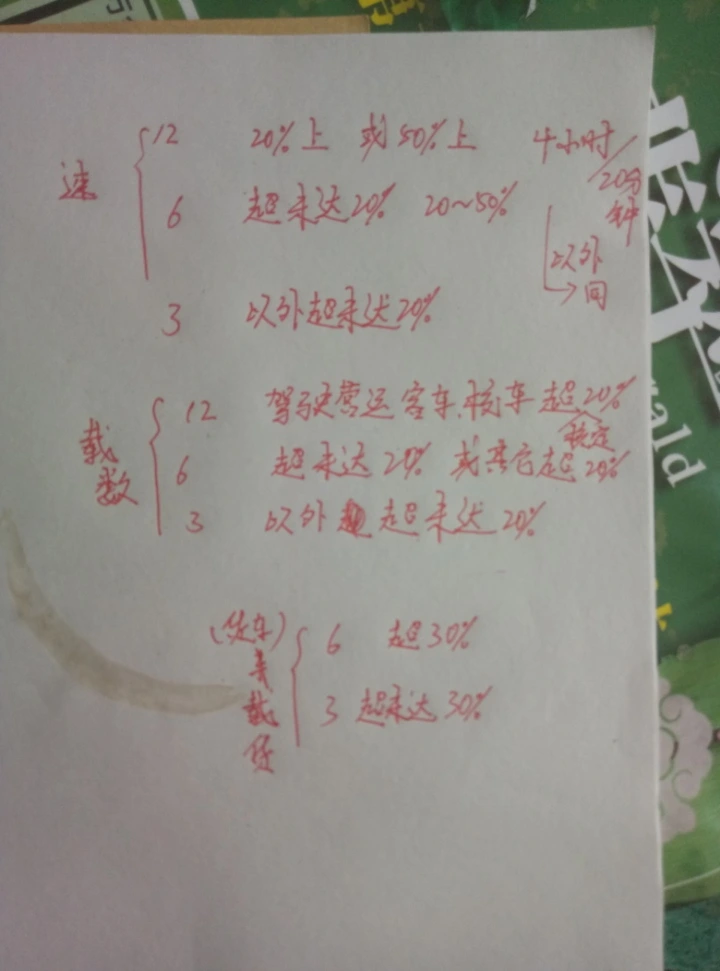 速
12 20%上 或50%上 4小时/20分钟
6 超未达20% 20~50%
以外
→同
3 以外超未达20%
载数
12 驾驶营运客车.校车 超20%
核定
6 超未达20% 或其它超20%
3 以外 超未达20%
(货车)
载货
6 超30%
3 超未达30%
rald